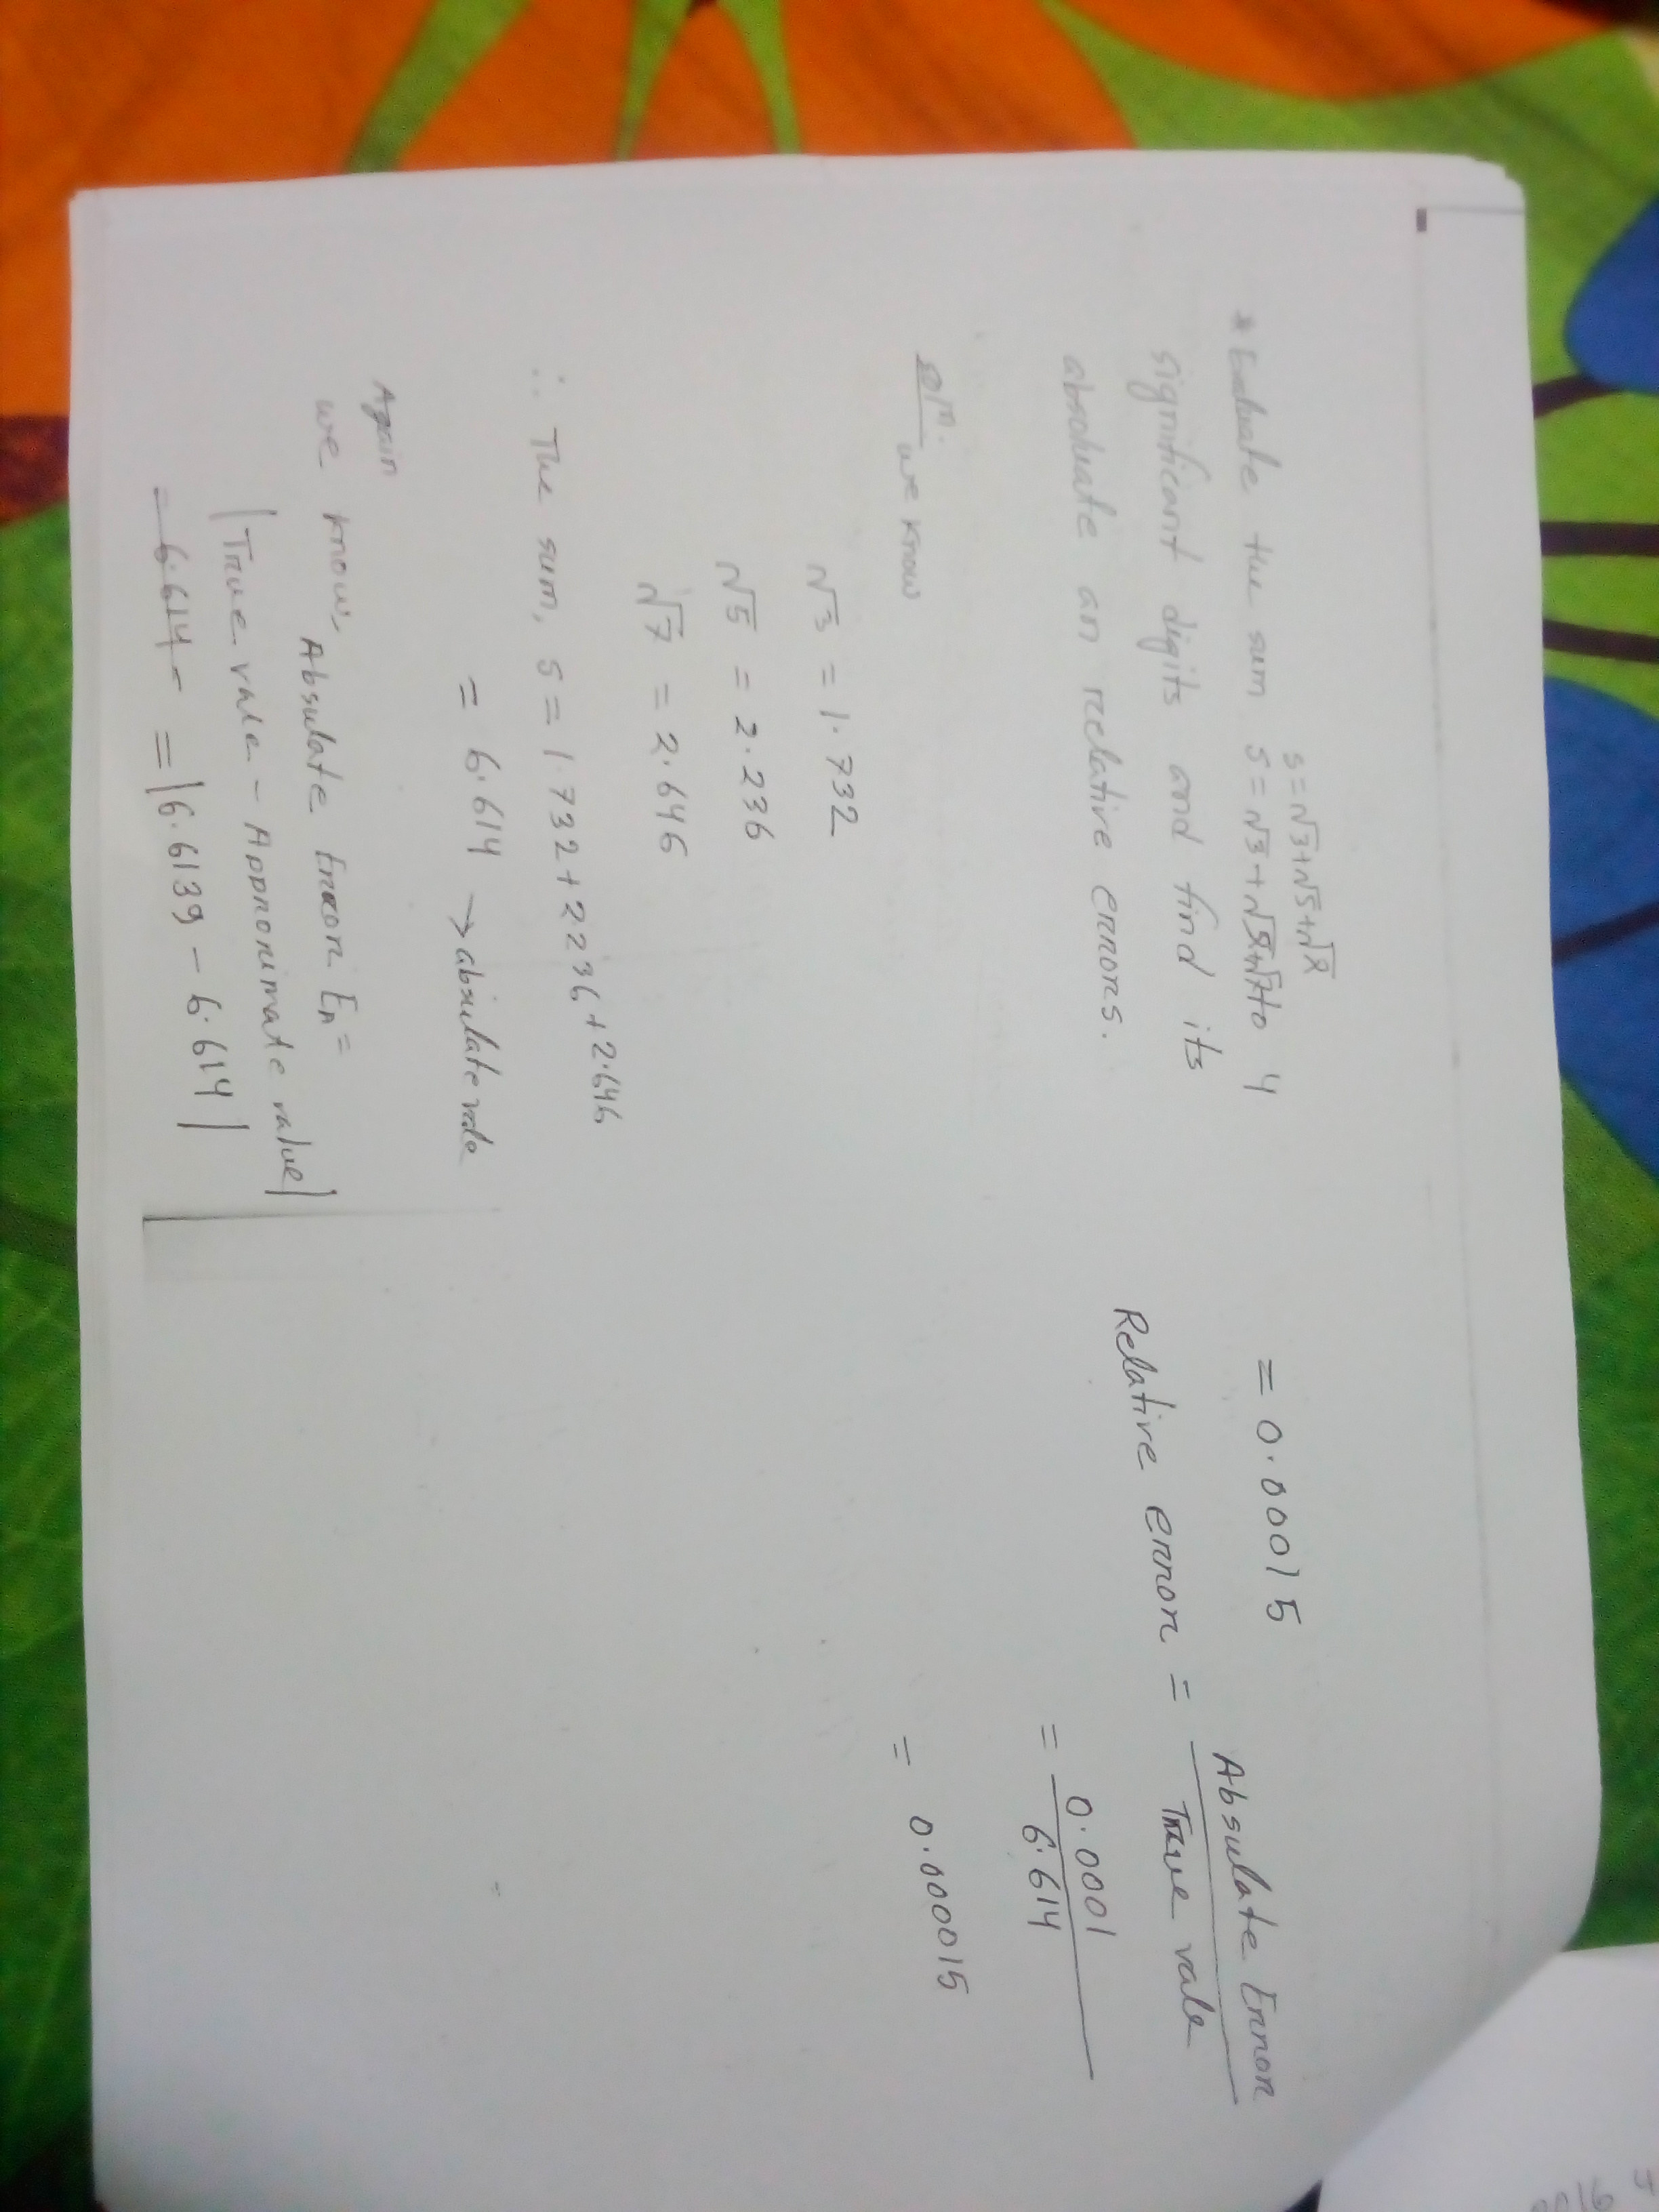 s = √3+√5+√7
* Evaluate the sum s = √3 + √5+√7 to 4
significant digits and find its
absoluate an relative errors.
soln.
we know
√3 = 1.732
√5 = 2.236
√7 = 2.646
∴ The sum, s = 1.732+2.236+2.646
= 6.614 → absulate vale
Again
we know, Absulate Error EA =
|True vale - Approximate value|
= 6.614 - = |6.6139 - 6.614|
= 0.00015
Relative error = Absulate Error
True vale
= 0.0001
6.614
= 0.000015